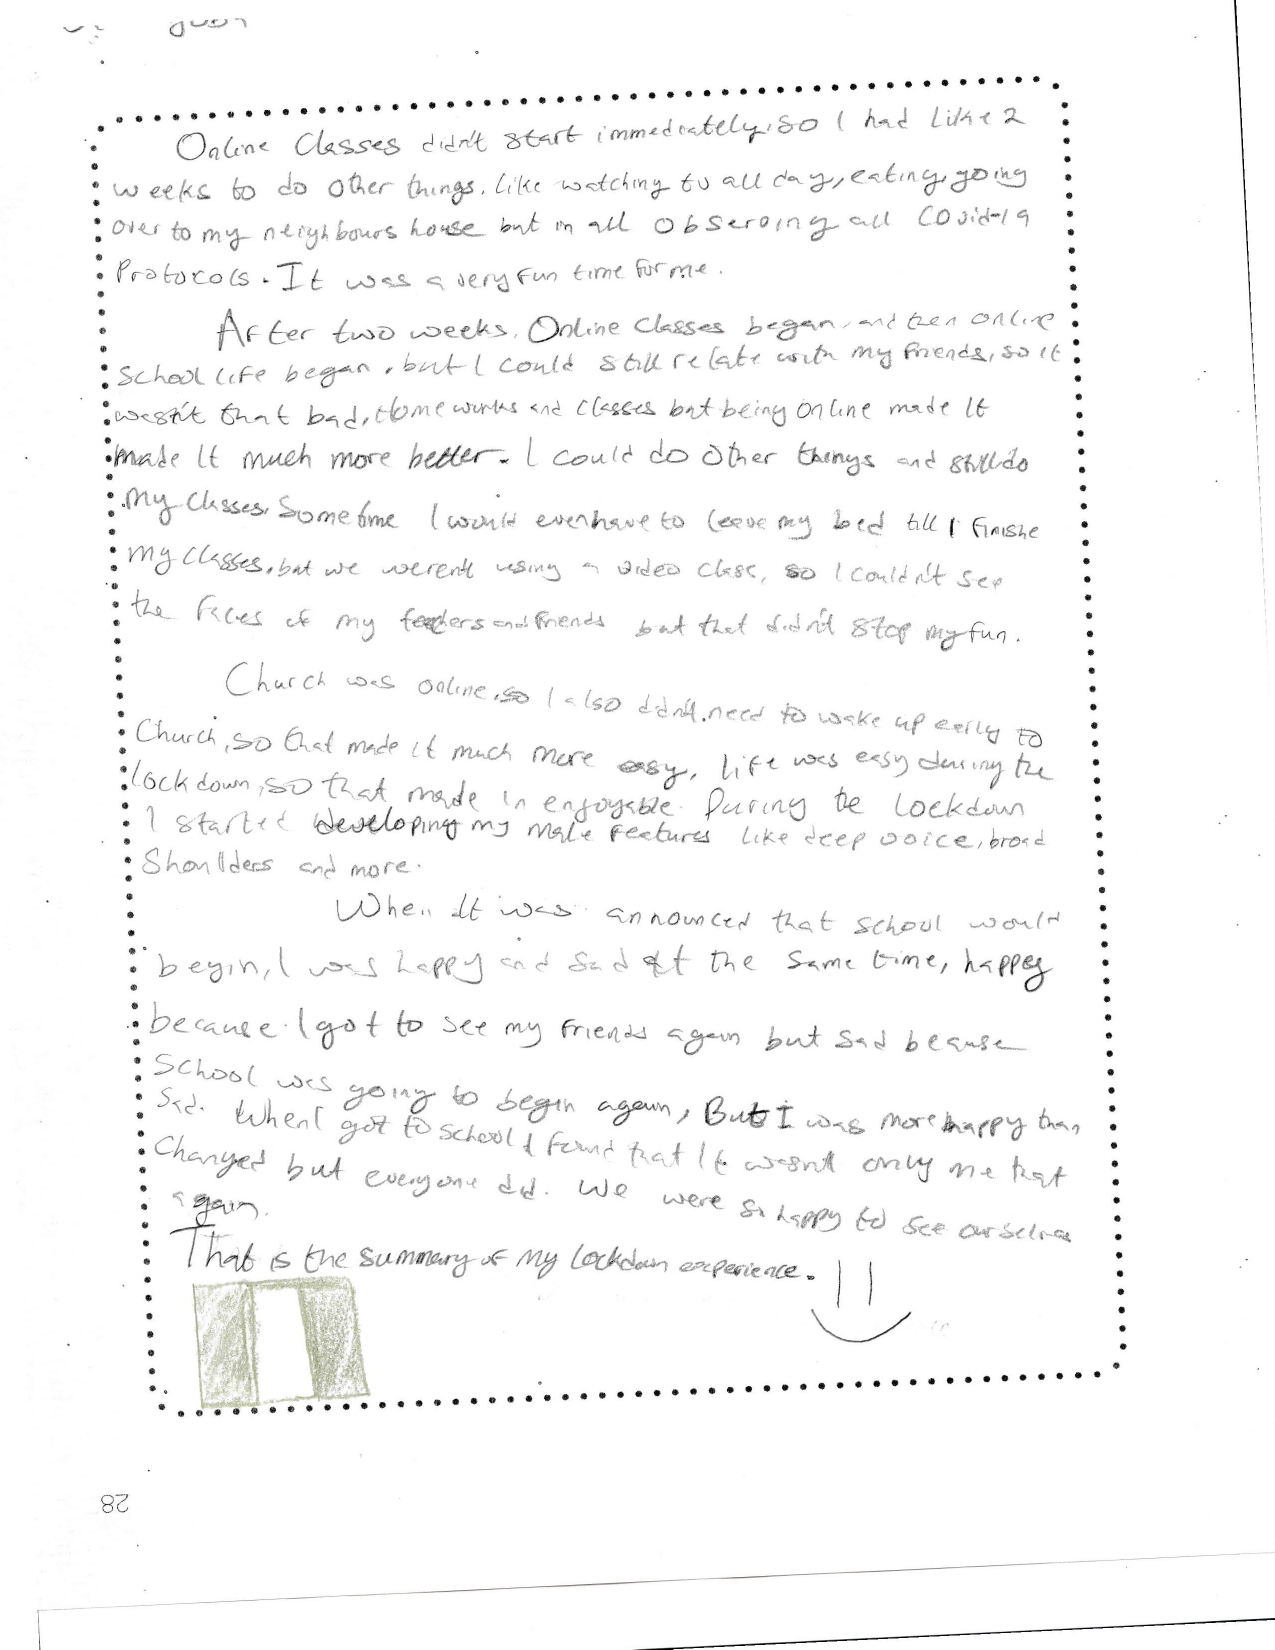 Online Classes didn't start immediately, so I had like 2
weeks to do other things. like watching tv all day, eating, going
over to my neighbours house but in all observing all Covid-19
Protocols. It was a very fun time for me.
After two weeks, Online Classes began, and then online
school life began, but I could still relate with my friends, so it
wasn't that bad, Home works and classes but being online made it
made it much more better. I could do other things and still do
my classes. Sometime I would even have to leave my bed till I finishe
my classes, but we weren't using a video class, so I couldn't see
the faces of my teachers and friends but that didn't stop my fun.
Church was online, so I also didn't need to wake up early to
Church, so that made it much more easy, life was easy during the
lockdown, so that made in enjoyable. During the lockdown
I started developing my male features like deep voice, broad
Shoullders and more.
When it was announced that school would
begin, I was happy and sad at the same time, happy
because I got to see my friends again but sad beause
school was going to begin again, But I was more happy than
Sad. When I got to school I found that it wasn't only me that
Changed but everyone did. We were so happy to see ourselves
again.
That is the summary of my lockdown experience.
28